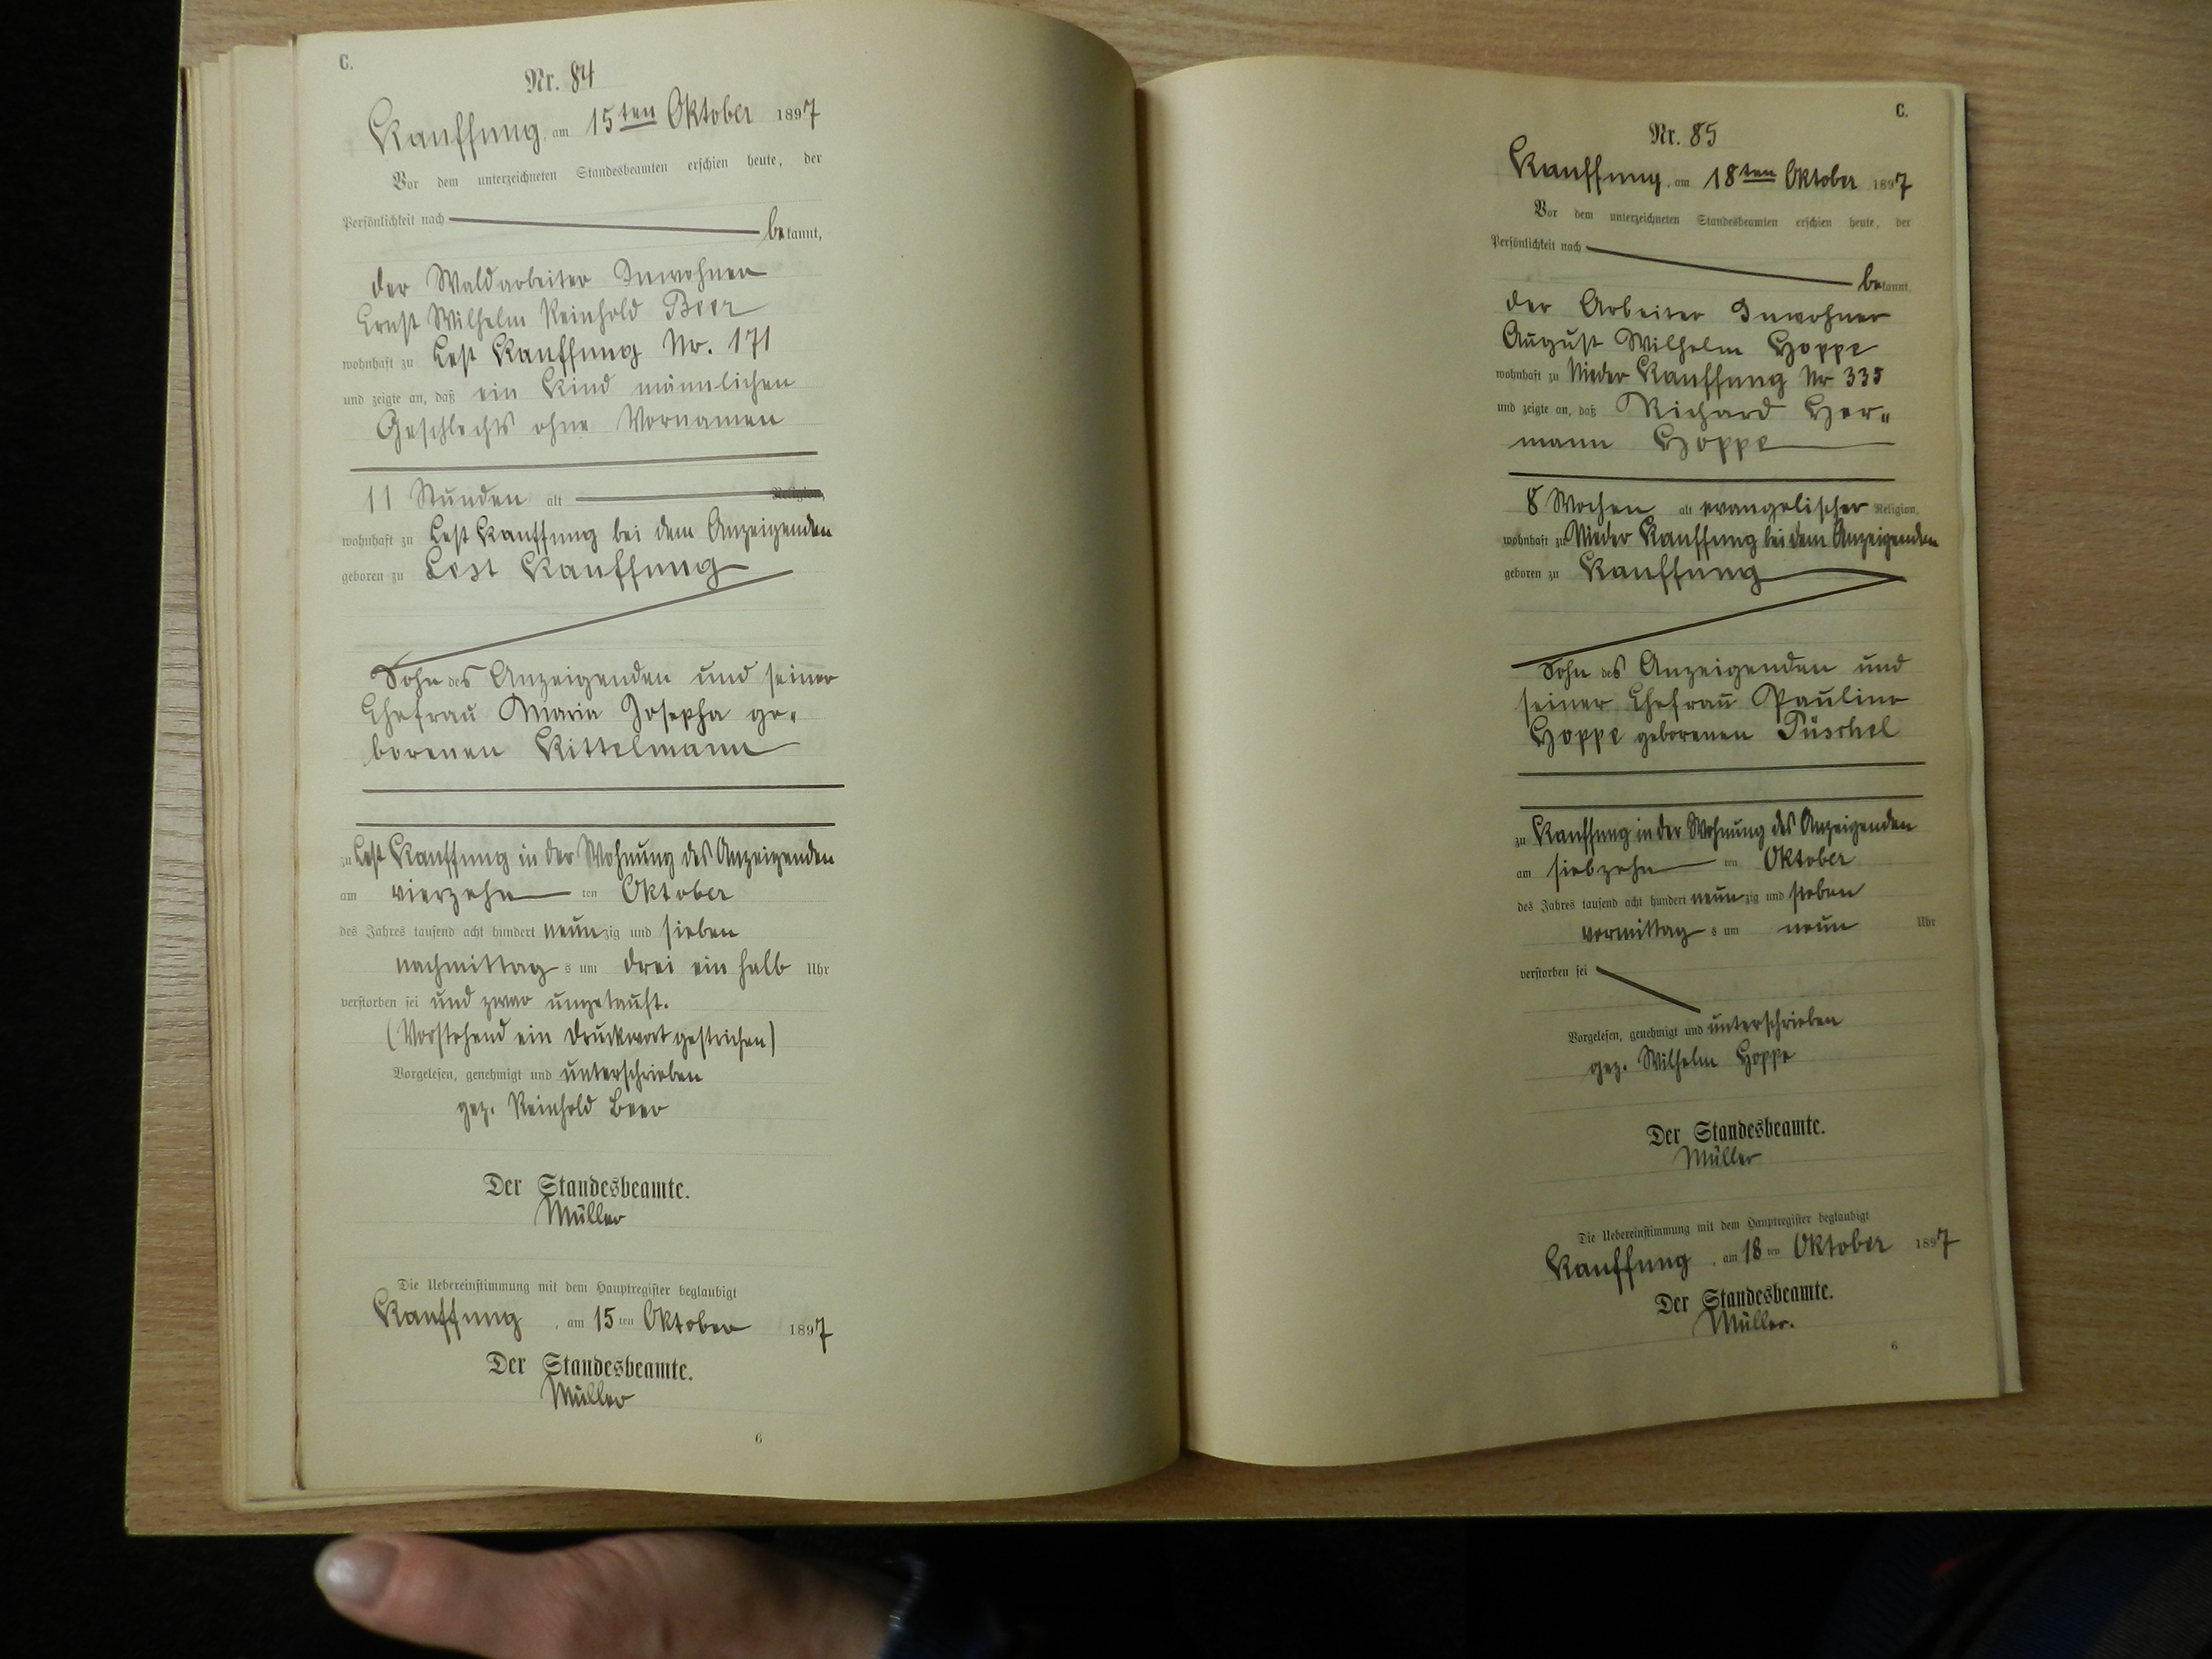 C.
Nr. 84
Kauffung, am 15ten Oktober 1897
Vor dem unterzeichneten Standesbeamten erschien heute, der
Persönlichkeit nach
bekannt,
der Waldarbeiter Inwohner
Ernst Wilhelm Reinhold Beer
wohnhaft zu Lest Kauffung Nr. 171
und zeigte an, daß ein Kind männlichen
Geschlechts ohne Vornamen
11 Stunden alt Religion,
wohnhaft zu Lest Kauffung bei dem Anzeigenden
geboren zu Lest Kauffung
Sohn des Anzeigenden und seiner
Ehefrau Maria Josepha ge-
borenen Kittelmann
zu Lest Kauffung in der Wohnung des Anzeigenden
am vierzehn ten Oktober
des Jahres tausend acht hundert neunzig und sieben
nachmittags um drei ein halb Uhr
verstorben sei und zwar ungetauft.
(Vorstehend ein Druckwort gestrichen)
Vorgelesen, genehmigt und unterschrieben
gez. Reinhold Beer
Der Standesbeamte.
Müller
Die Uebereinstimmung mit dem Hauptregister beglaubigt
Kauffung, am 15ten Oktober 1897
Der Standesbeamte.
Müller
6
C.
Nr. 85
Kauffung, am 18ten Oktober 1897
Vor dem unterzeichneten Standesbeamten erschien heute, der
Persönlichkeit nach
bekannt,
der Arbeiter Inwohner
August Wilhelm Hoppe
wohnhaft zu Nieder Kauffung Nr 335
und zeigte an, daß Richard Her-
mann Hoppe
8 Wochen alt evangelischer Religion,
wohnhaft zu Nieder Kauffung bei dem Anzeigenden
geboren zu Kauffung
Sohn des Anzeigenden und
seiner Ehefrau Pauline
Hoppe geborenen Püschel
zu Kauffung in der Wohnung des Anzeigenden
am siebzehn ten Oktober
des Jahres tausend acht hundert neunzig und sieben
vormittags um neun Uhr
verstorben sei
Vorgelesen, genehmigt und unterschrieben
gez. Wilhelm Hoppe
Der Standesbeamte.
Müller
Die Uebereinstimmung mit dem Hauptregister beglaubigt
Kauffung, am 18ten Oktober 1897
Der Standesbeamte.
Müller.
6